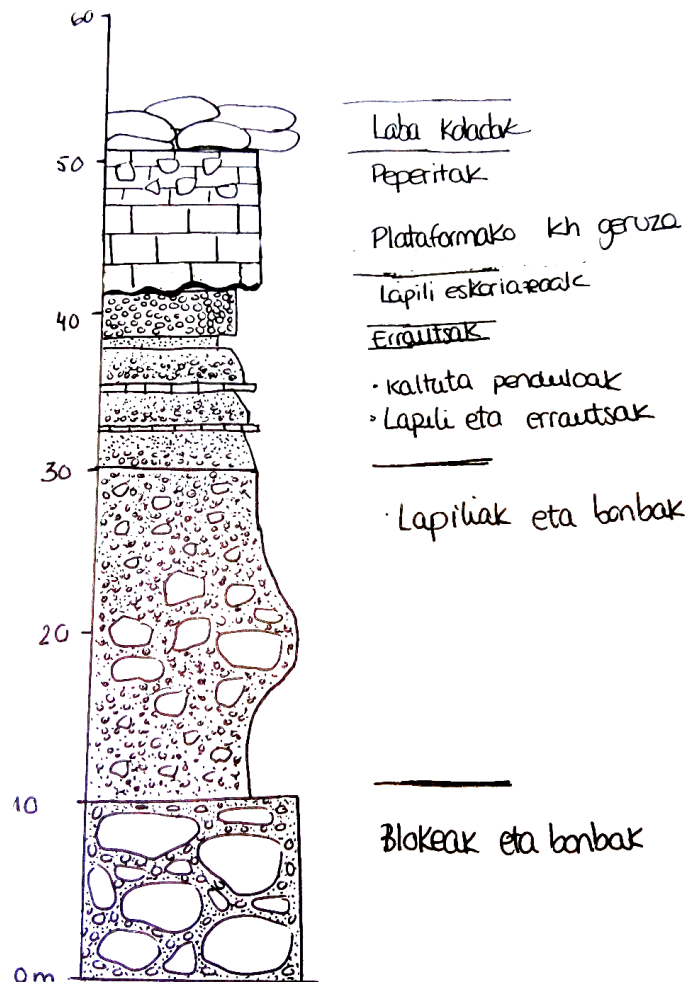 60
Laba koladak
50
Peperitak
Plataformako kh geruza
Lapili eskoriazeoak
40
Errautsak
· kaltuta penduloak
· Lapili eta errautsak
30
· Lapiliak eta bonbak
20
10
Blokeak eta bonbak
0 m